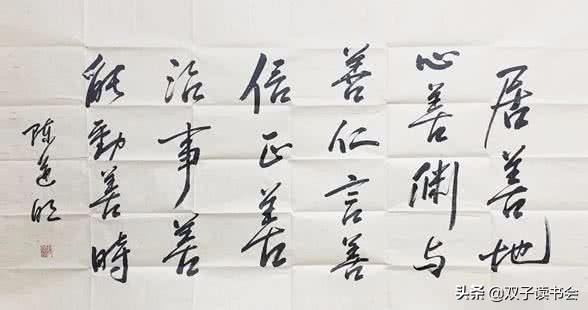 居善地
心善渊与
善仁言善
信正善
治事善
能動善時
陈道明
头条 @双子读书会